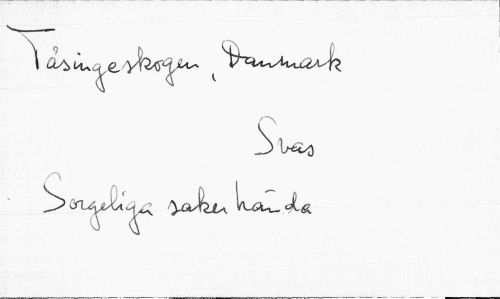 Tåsingeskogen, Danmark
Svas
Sorgeliga saker hända